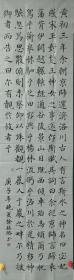 黄初三年余朝京師還濟洛川古人有言斯水之神名曰
宓妃感宋玉對楚王神女之事遂作斯賦其詞曰余從京
域言歸東藩背伊闕越轘轅經通谷陵景山日既西傾車
殆馬煩爾乃稅駕乎蘅皋秣駟乎芝田容與乎陽林流眄
乎洛川於是精移神駭
忽焉思散俯則未察仰以殊觀睹一麗人于巖之畔乃援
御者而告之曰爾有覿於彼者乎
庚子年晚夏